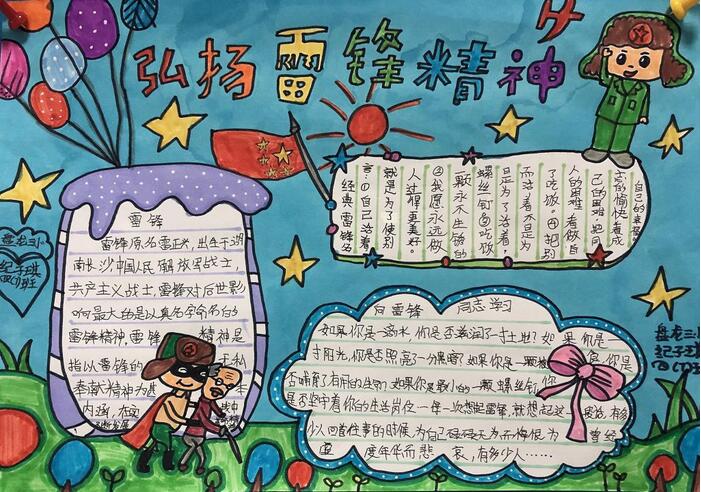 弘扬雷锋精神
雷锋
雷锋原名雷正兴,出生于湖
南长沙中国人民解放军战士
共产主义战士,雷锋对后世影
响最大的是以其名字命名的
雷锋精神,雷锋 精神是
指以雷锋的 无私
奉献精神为基 本
内涵,在实 践中
经典雷锋名
言:①自己活着,
就是为了使别
人过得更美好。
②我愿永远做
一颗永不生锈的
螺丝钉③吃饭
是为了活着,
而活着不是为
了吃饭。④把别
人的困难看做自
己的困难,把同
志的愉快看成
自己的幸福
向雷锋 同志学习
如果你是一滴水,你是否滋润了一寸土地?如果你是一
寸阳光,你是否照亮了一分黑暗?如果你是一颗粮食,你是
否哺育了有用的生命?如果你是最小的一颗螺丝钉,你
是否坚守着你的生活岗位一每一次想起雷锋,就想起这 有多
少人回首往事的时候,为自己碌碌无为而悔恨为 曾经
虚度年华而悲 哀,有多少人……
盘龙三小
纪子琪
四(1)班
盘龙三小
纪子琪
四(1)班